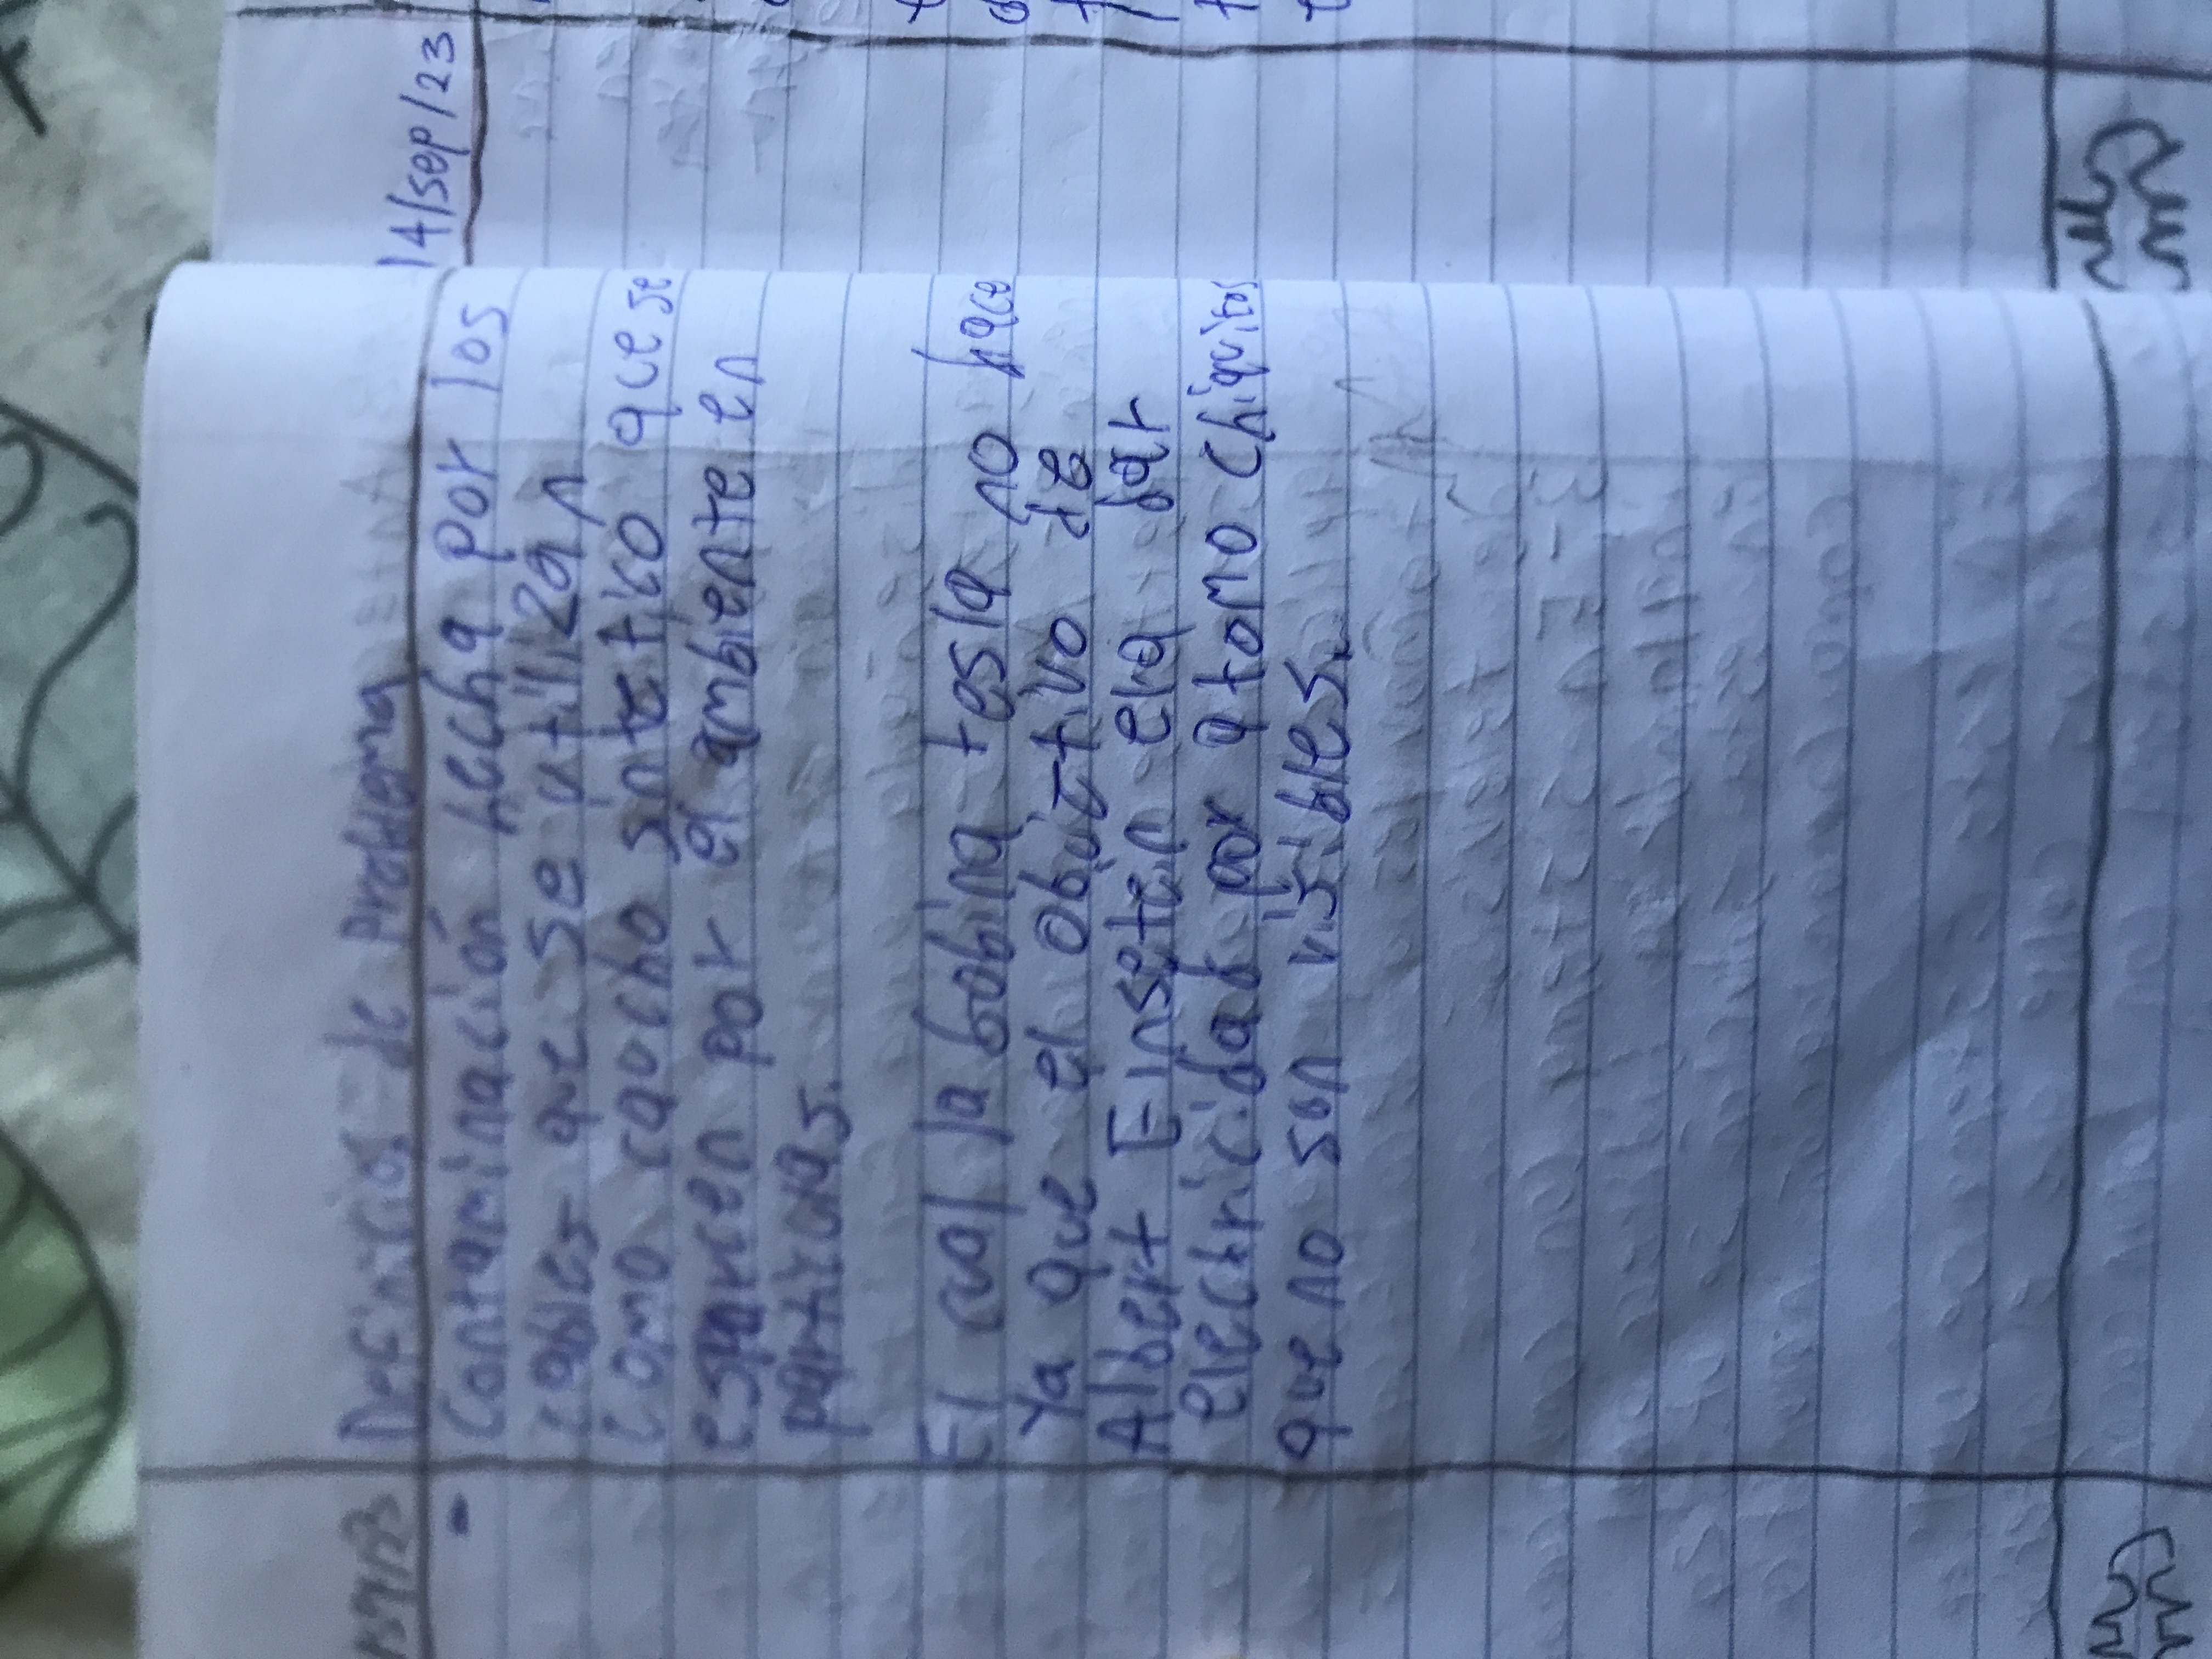 14/sep/23
Definicios de problema
- Contaminación hecha por los
cables que se utilizan
como caucho sintetico que se
esparcen por el ambiente en
particulas.
El cual la bobina tesla no hace
Ya que el objetivo de
Albert Einsetein era dar
electricidad por atomo chiquitos
que no son visibles.